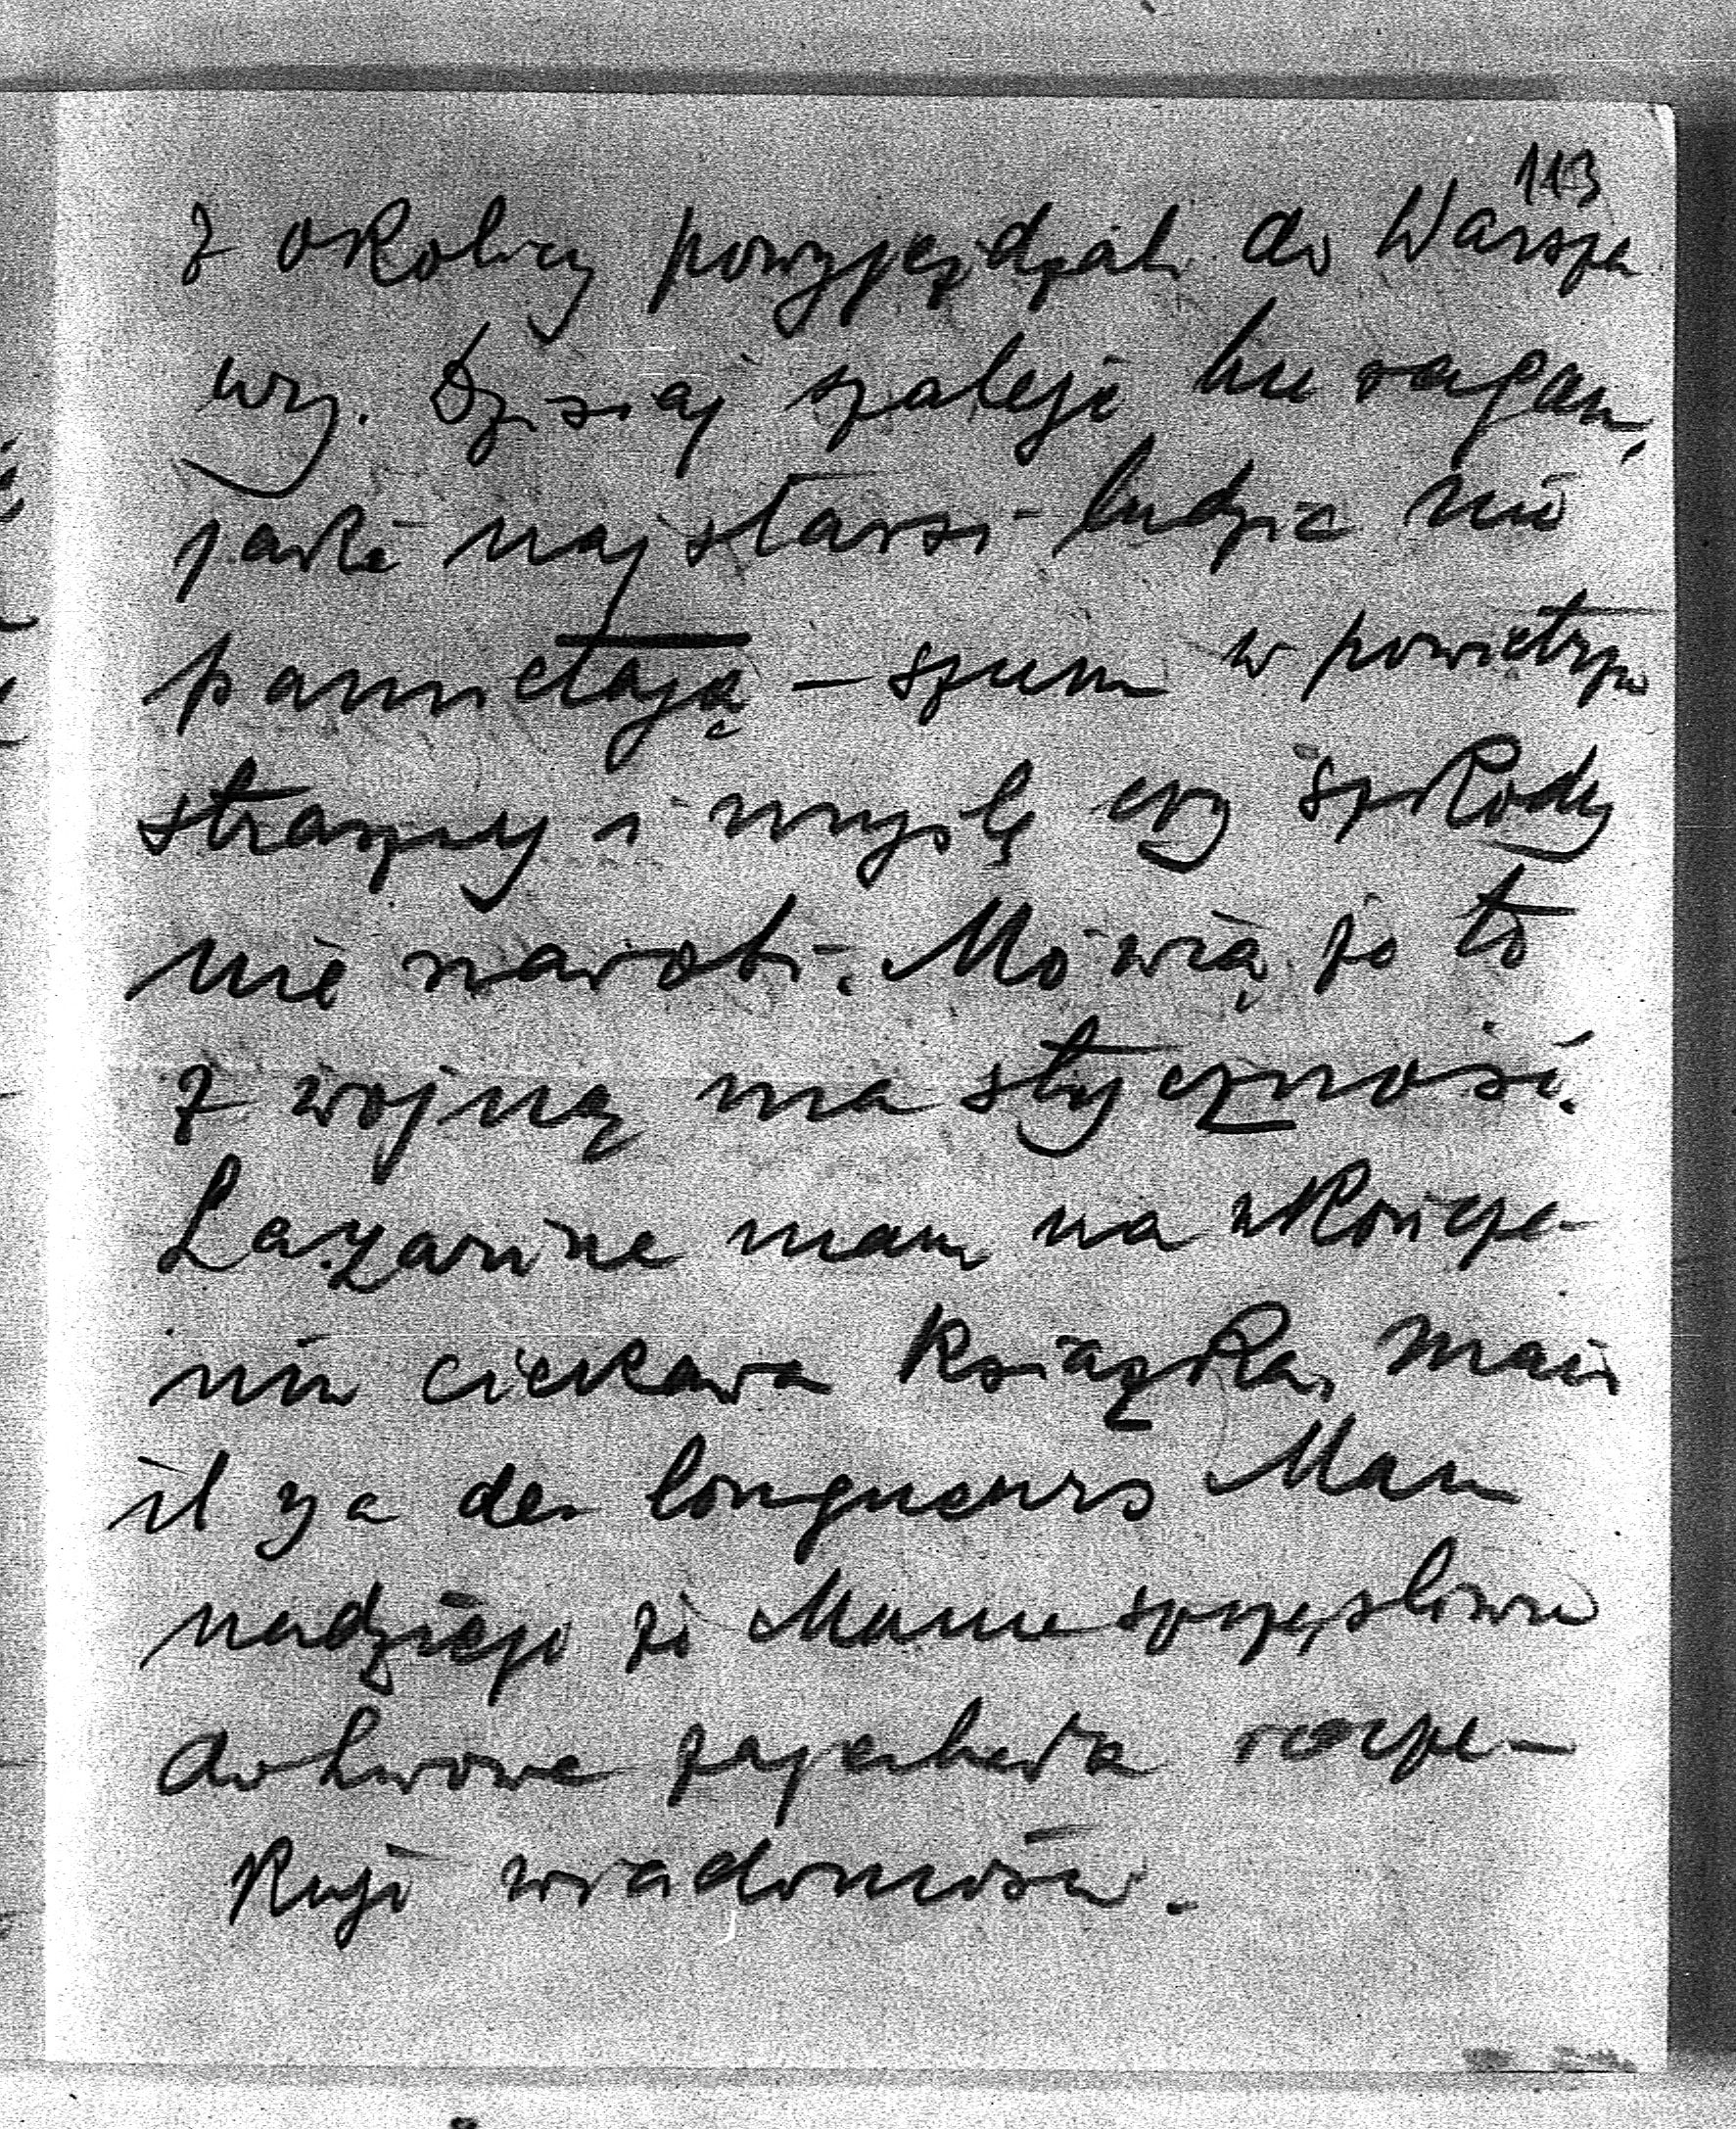 113
z okolicy powyjeżdżali do Warsza
wy. Dzisiaj szaleje huragan,
jaki najstarsi ludzie nie
pamiętają – szum w powietrzu
straszny i myślę czy szkody
nie narobi. Mówią że to
z wojną ma styczność.
Lazarine mam na ukończe
niu ciekawa książka, mais
il y a des longueurs Mam
nadzieję że Mama szczęśliwie
do Lwowa zajechała iocze–
kuję wiadomości.